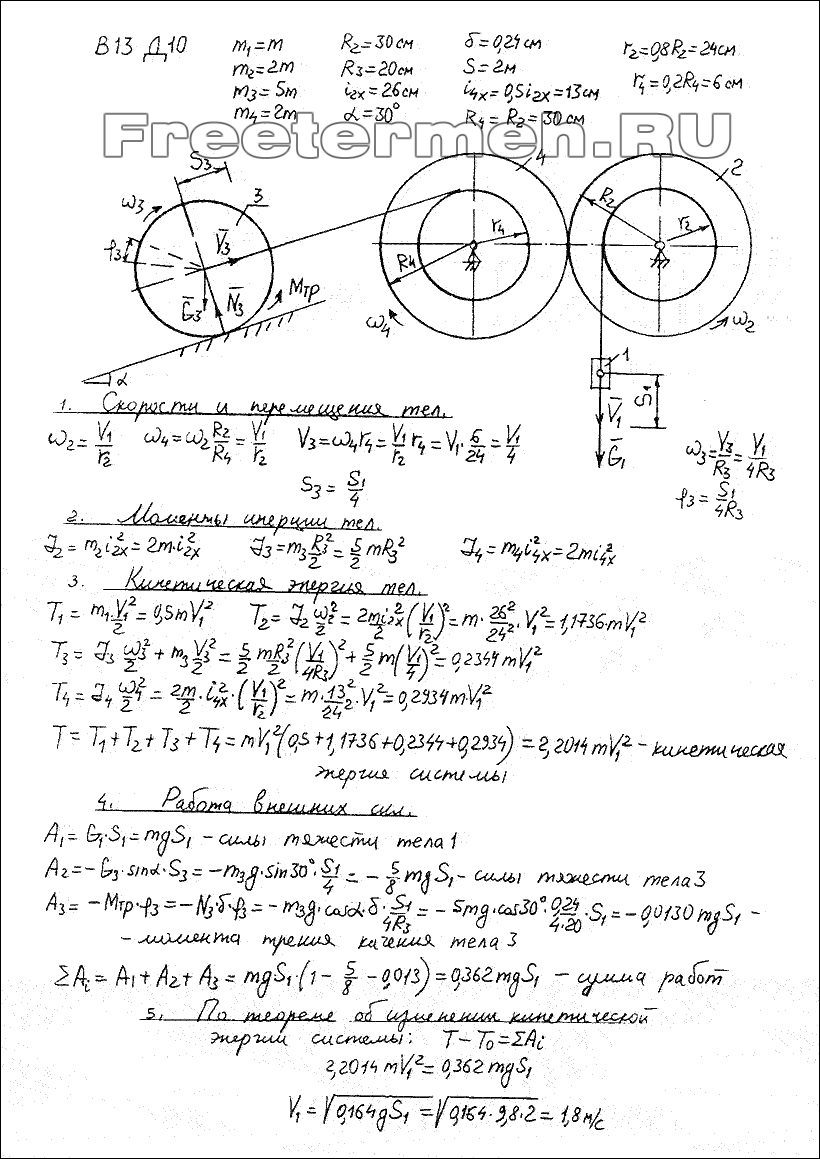 В13 Д10 m₁=m R₂=30см δ=0,24см r₂=0,8R₂=24см
m₂=2m R₃=20см S=2м
m₃=5m i₂ₓ=26см i₄ₓ=0,5i₂ₓ=13см r₄=0,2R₄=6см
m₄=2m α=30° R₄=R₂=30см
Freetermen.RU
S₃ ω₃ 3 φ₃ V̄₃ Ḡ₃ N̄₃ Mтр α
4 R₄ r₄ ω₄
2 R₂ r₂ ω₂
1 S₁ V̄₁ Ḡ₁
1. Скорости и перемещения тел.
ω₂=V₁/r₂ ω₄=ω₂R₂/R₄=V₁/r₂ V₃=ω₄r₄=V₁/r₂ r₄=V₁·6/24=V₁/4 ω₃=V₃/R₃=V₁/4R₃
S₃=S₁/4 φ₃=S₁/4R₃
2. Моменты инерции тел.
J₂=m₂i₂ₓ²=2m·i₂ₓ² J₃=m₃R₃²/2=5/2 mR₃² J₄=m₄i₄ₓ²=2mi₄ₓ²
3. Кинетическая энергия тел.
T₁=m₁·V₁²/2=0,5mV₁² T₂=J₂ω₂²/2=2mi₂ₓ²/2(V₁/r₂)²=m·26²/24²·V₁²=1,1736·mV₁²
T₃=J₃ω₃²/2+m₃V₃²/2=5/2 mR₃²/2(V₁/4R₃)²+5/2 m(V₁/4)²=0,2344mV₁²
T₄=J₄ω₄²/2=2m/2·i₄ₓ²·(V₁/r₂)²=m·13²/24²·V₁²=0,2934m·V₁²
T=T₁+T₂+T₃+T₄=mV₁²(0,5+1,1736+0,2344+0,2934)=2,2014mV₁² - кинетическая
энергия системы
4. Работа внешних сил.
A₁=G₁·S₁=mgS₁ - силы тяжести тела 1
A₂=-G₃·sinα·S₃=-m₃g·sin30°·S₁/4=-5/8 mgS₁ - силы тяжести тела 3
A₃=-Mтр·φ₃=-N₃·δ·φ₃=-m₃g·cosα·δ·S₁/4R₃=-5mg·cos30°·0,24/4·20·S₁=-0,0130mgS₁ -
- момента трения качения тела 3
ΣAᵢ=A₁+A₂+A₃=mgS₁·(1-5/8-0,013)=0,362mgS₁ - сумма работ
5. По теореме об изменении кинетической
энергии системы: T-T₀=ΣAᵢ
2,2014mV₁²=0,362mgS₁
V₁=√0,164gS₁=√0,164·9,8·2=1,8м/с